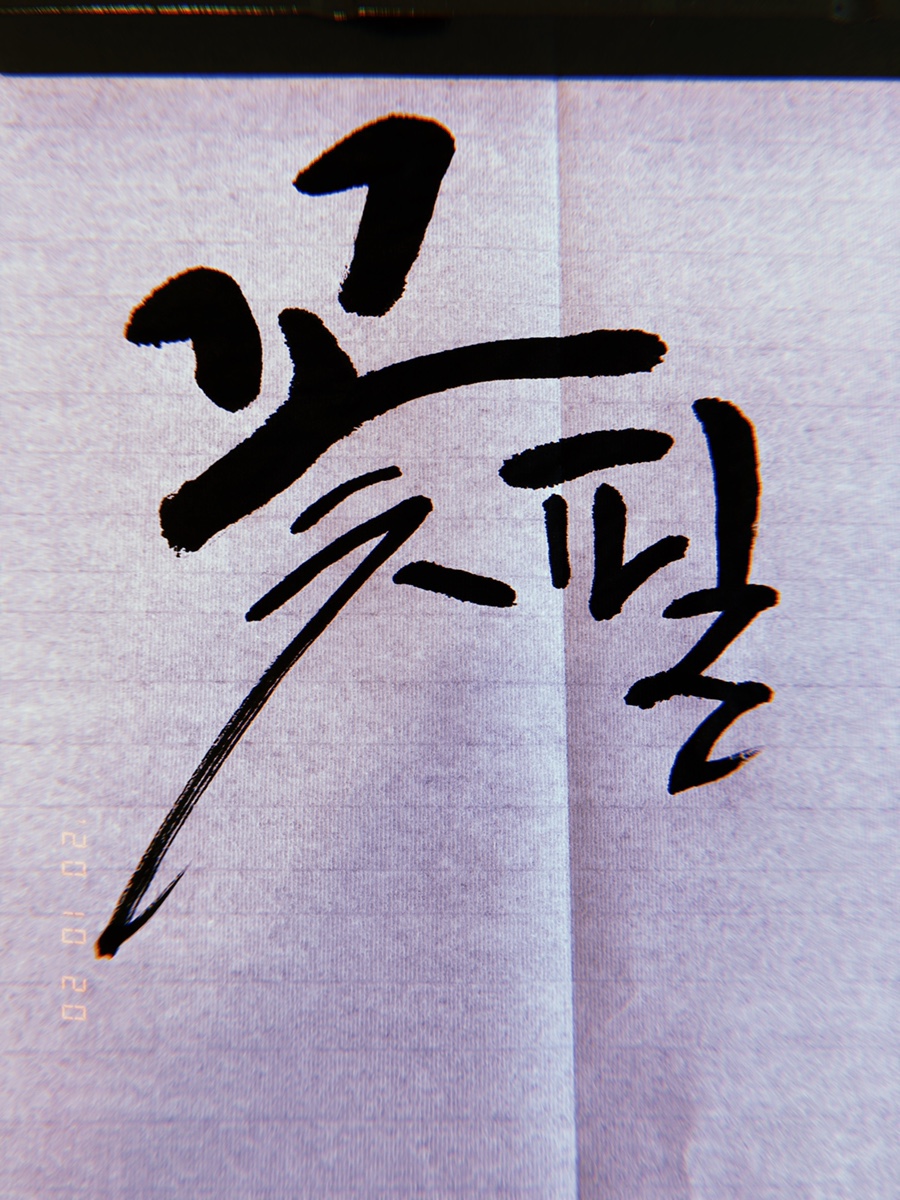 꽃필
'20 10 20